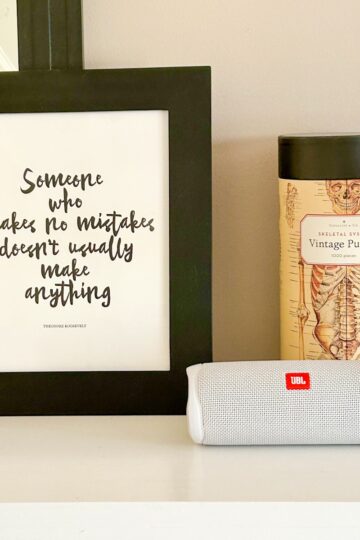 Someone
who
makes no mistakes
doesn't usually
make
anything
THEODORE ROOSEVELT
SKELETAL SYS
Vintage Pu
1000 pieces
JBL